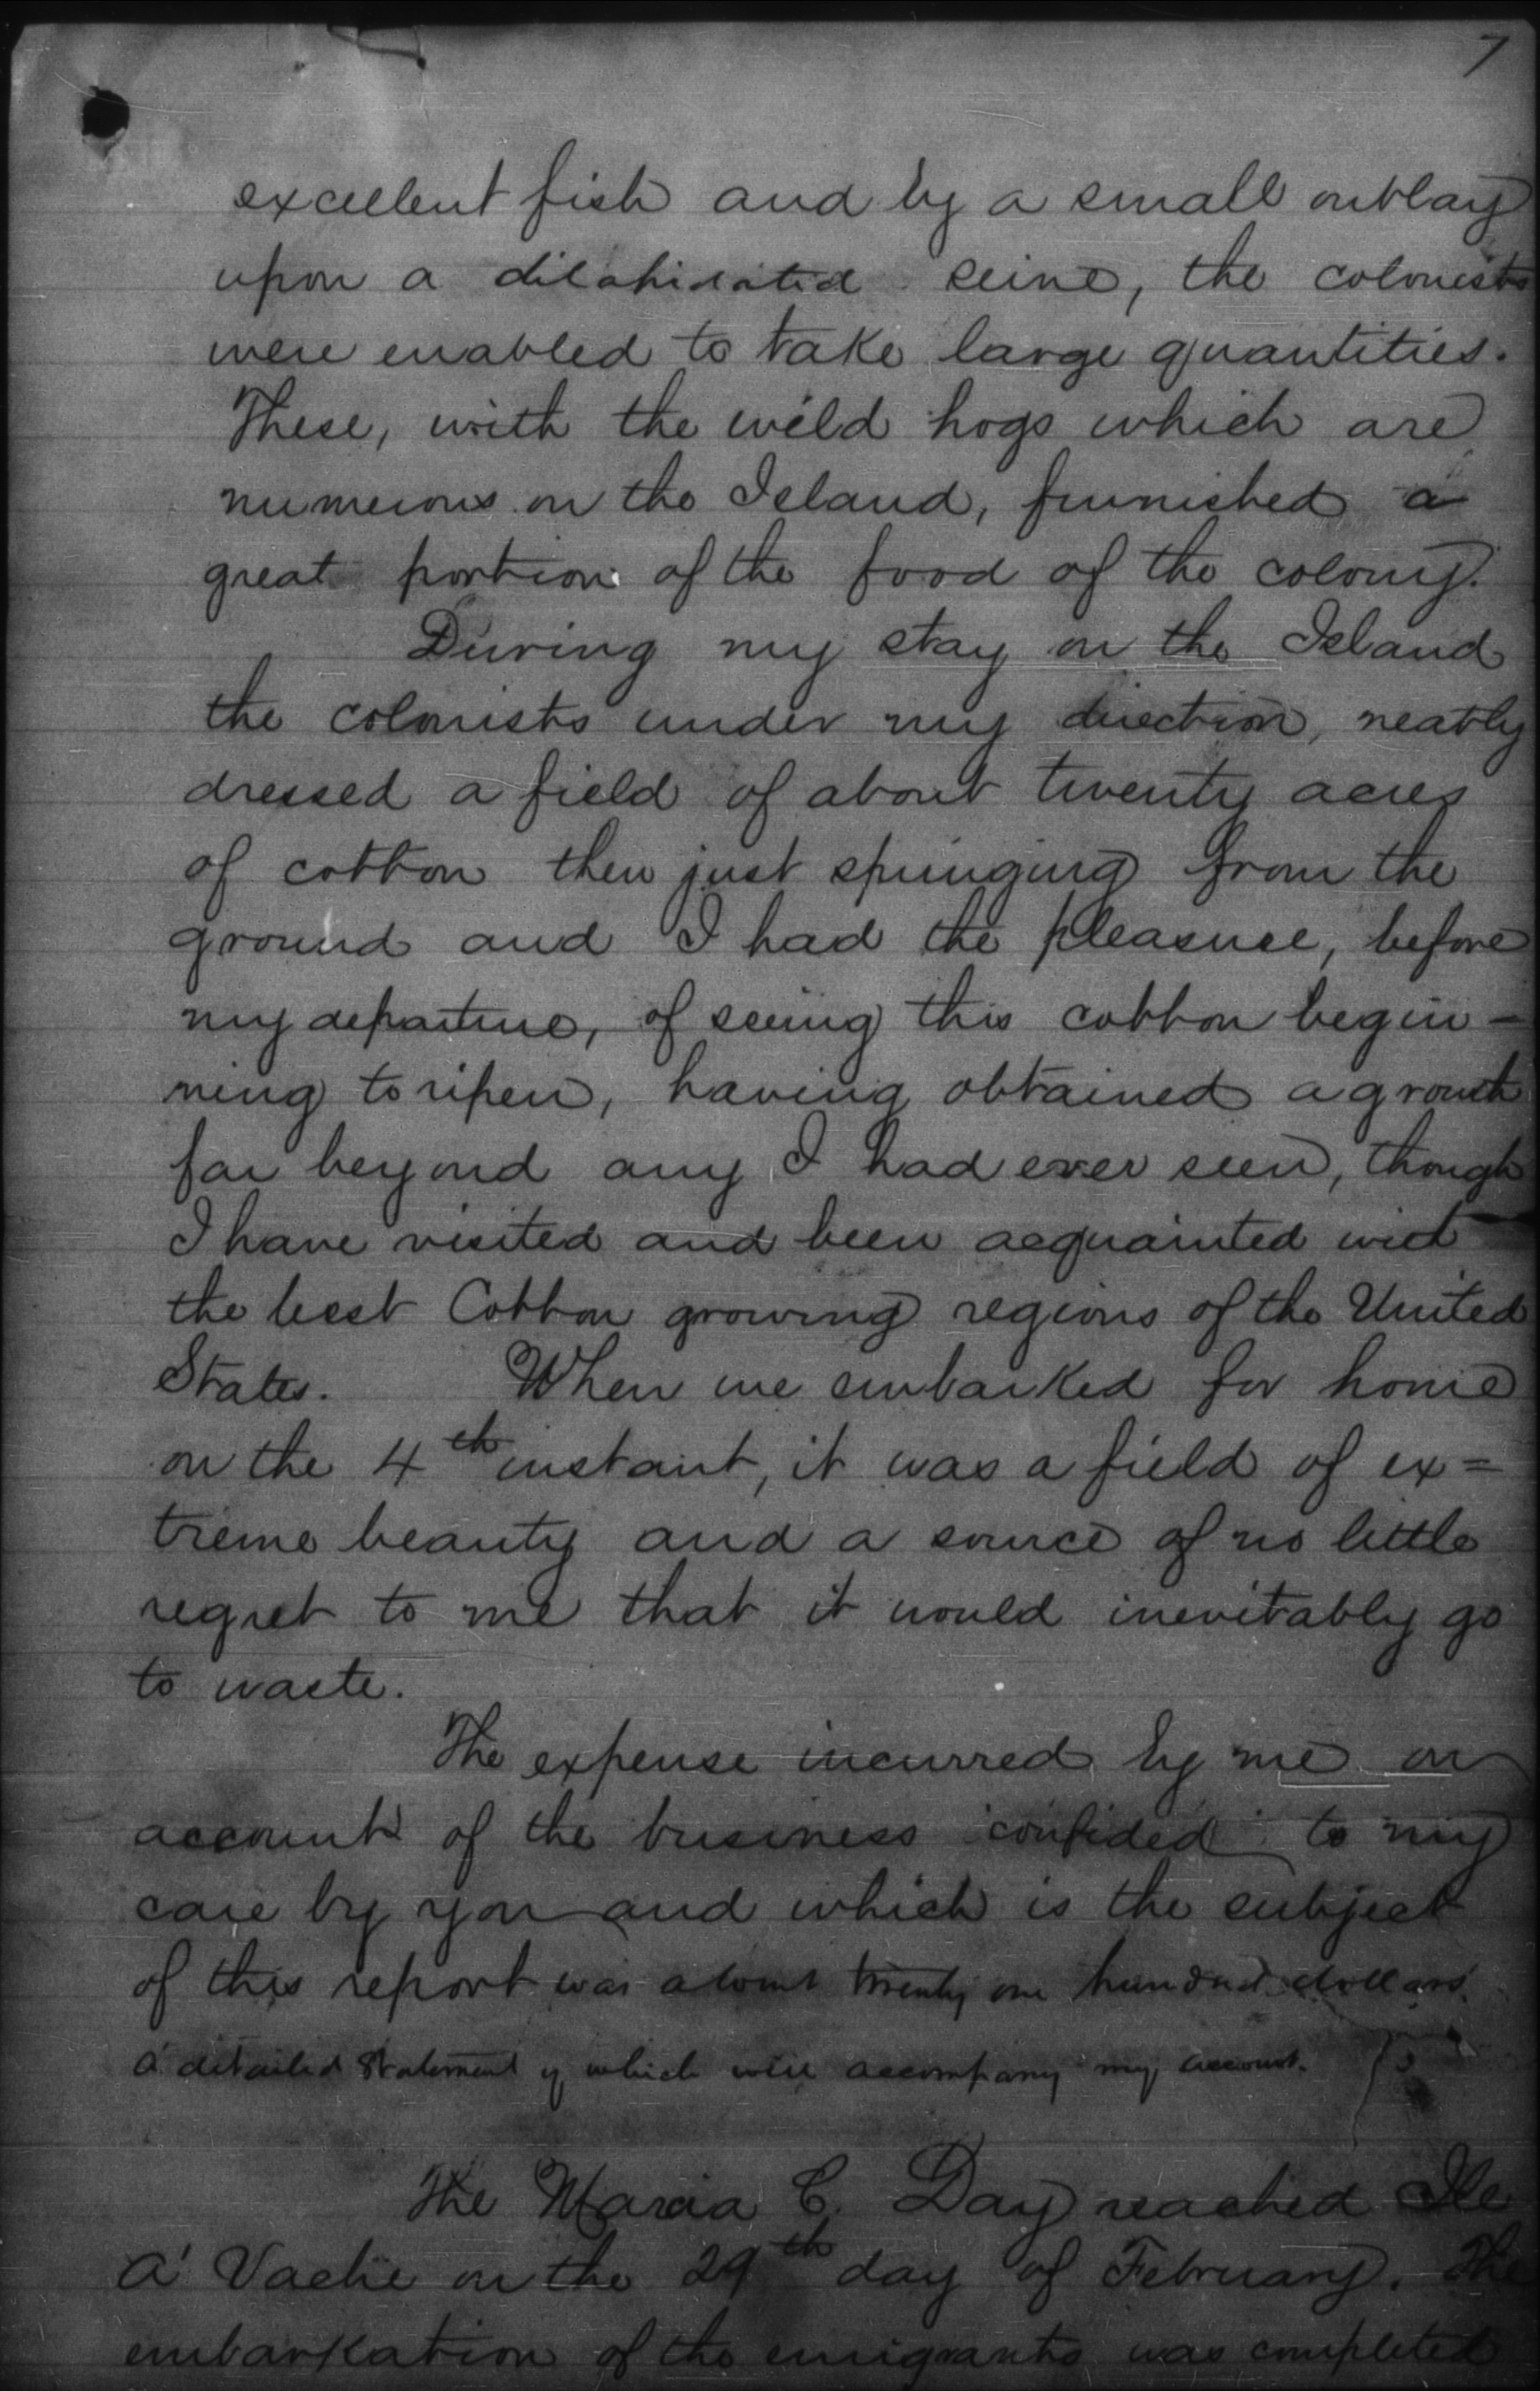 7
excellent fish and by a small outlay
upon a dilapidated seine, the colonists
were enabled to take large quantities.
These, with the wild hogs which are
numerous on the Island, furnished a
great portion of the food of the colony.
During my stay on the Island
the colonists under my direction, neatly
dressed a field of about twenty acres
of cotton then just springing from the
ground and I had the pleasure, before
my departure, of seeing this cotton begin-
ning to ripen, having obtained a growth
far beyond any I had ever seen, though
I have visited and been acquainted with
the best Cotton growing regions of the United
States. When we embarked for home
on the 4th instant, it was a field of ex=
treme beauty and a source of no little
regret to me that it would inevitably go
to waste.
The expense incurred by me on
account of the business confided to my
care by you and which is the subject
of this report was about twenty one hundred dollars.
A detailed statement of which will accompany my account.
The Marcia C. Day reached Ile
A' Vache on the 29th day of February. The
embarkation of the emigrants was completed